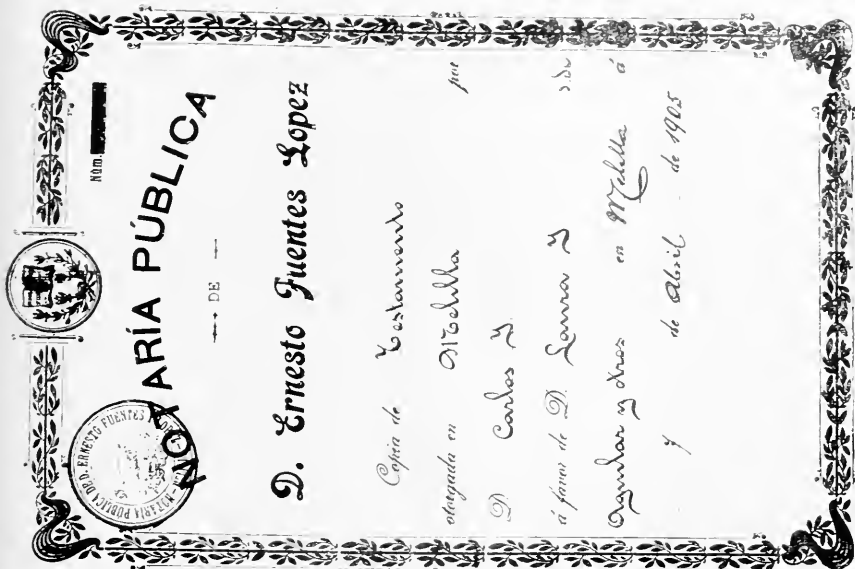 Núm.
NOTARÍA PÚBLICA
DE
D. Ernesto Fuentes Lopez
NOTARIA PUBLICA DE D. ERNESTO FUENTES
Copia de Testamento
otorgada en Melilla por
D. Carlos J.
á favor de D. Laura J
Aguilar y otros en Melilla á
7 de Abril de 1905